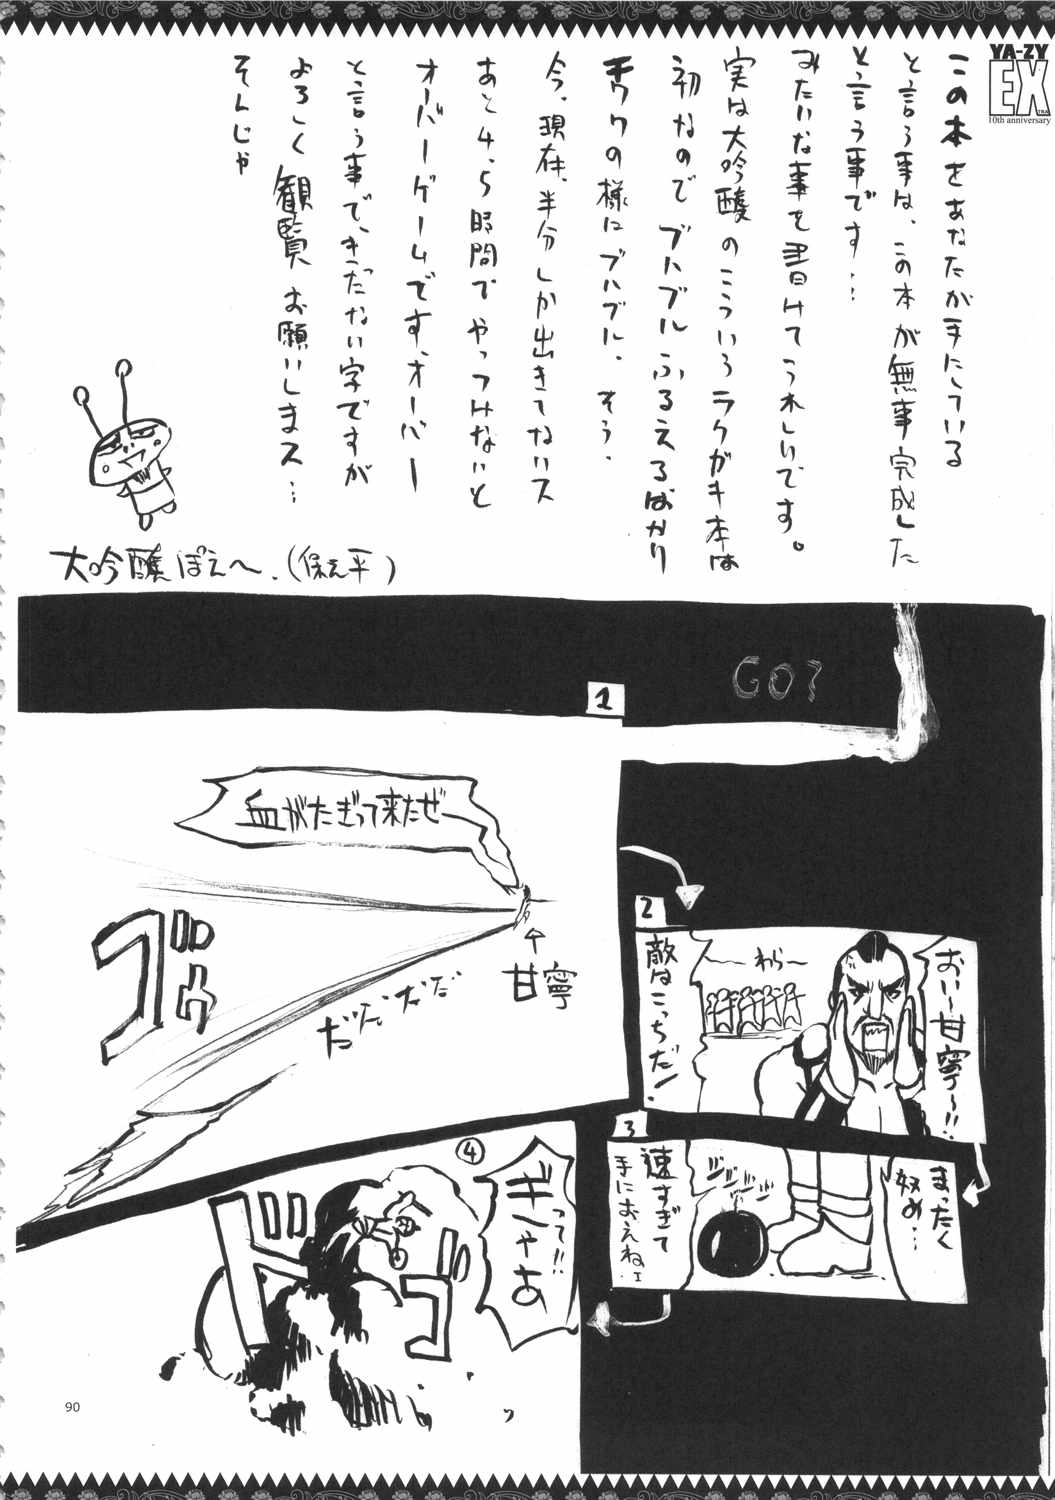 YA-ZY
EX
10th anniversary
この本をあなたが手にしている
と言う事は、この本が無事完成した
と言う事です…
みたいな事を書けてうれしいです。
実は大吟醸のこういうラクガキ本は
初なので ブルブル ふるえるばかり
チワワの様にブルブル、そう、
今、現在、半分しか出きてないス
あと4、5時間でやっつけないと
オーバーゲームです、オーバー
と言う事で、きったない字ですが
よろしく 観覧 お願いしまス…
そんじゃ
大吟醸ぽえ〜、(保え平)
GO?
1
血がたぎって来たぜー
ゴゥ
↑
甘寧
だだだだ
2
おい〜甘寧〜!!
〜わら〜
敵はこっちだ!
3
まったく
奴め…
ジジジジ
速すぎて
手におえねェ
4
ぎゃあ
って!!
ドゴ
90